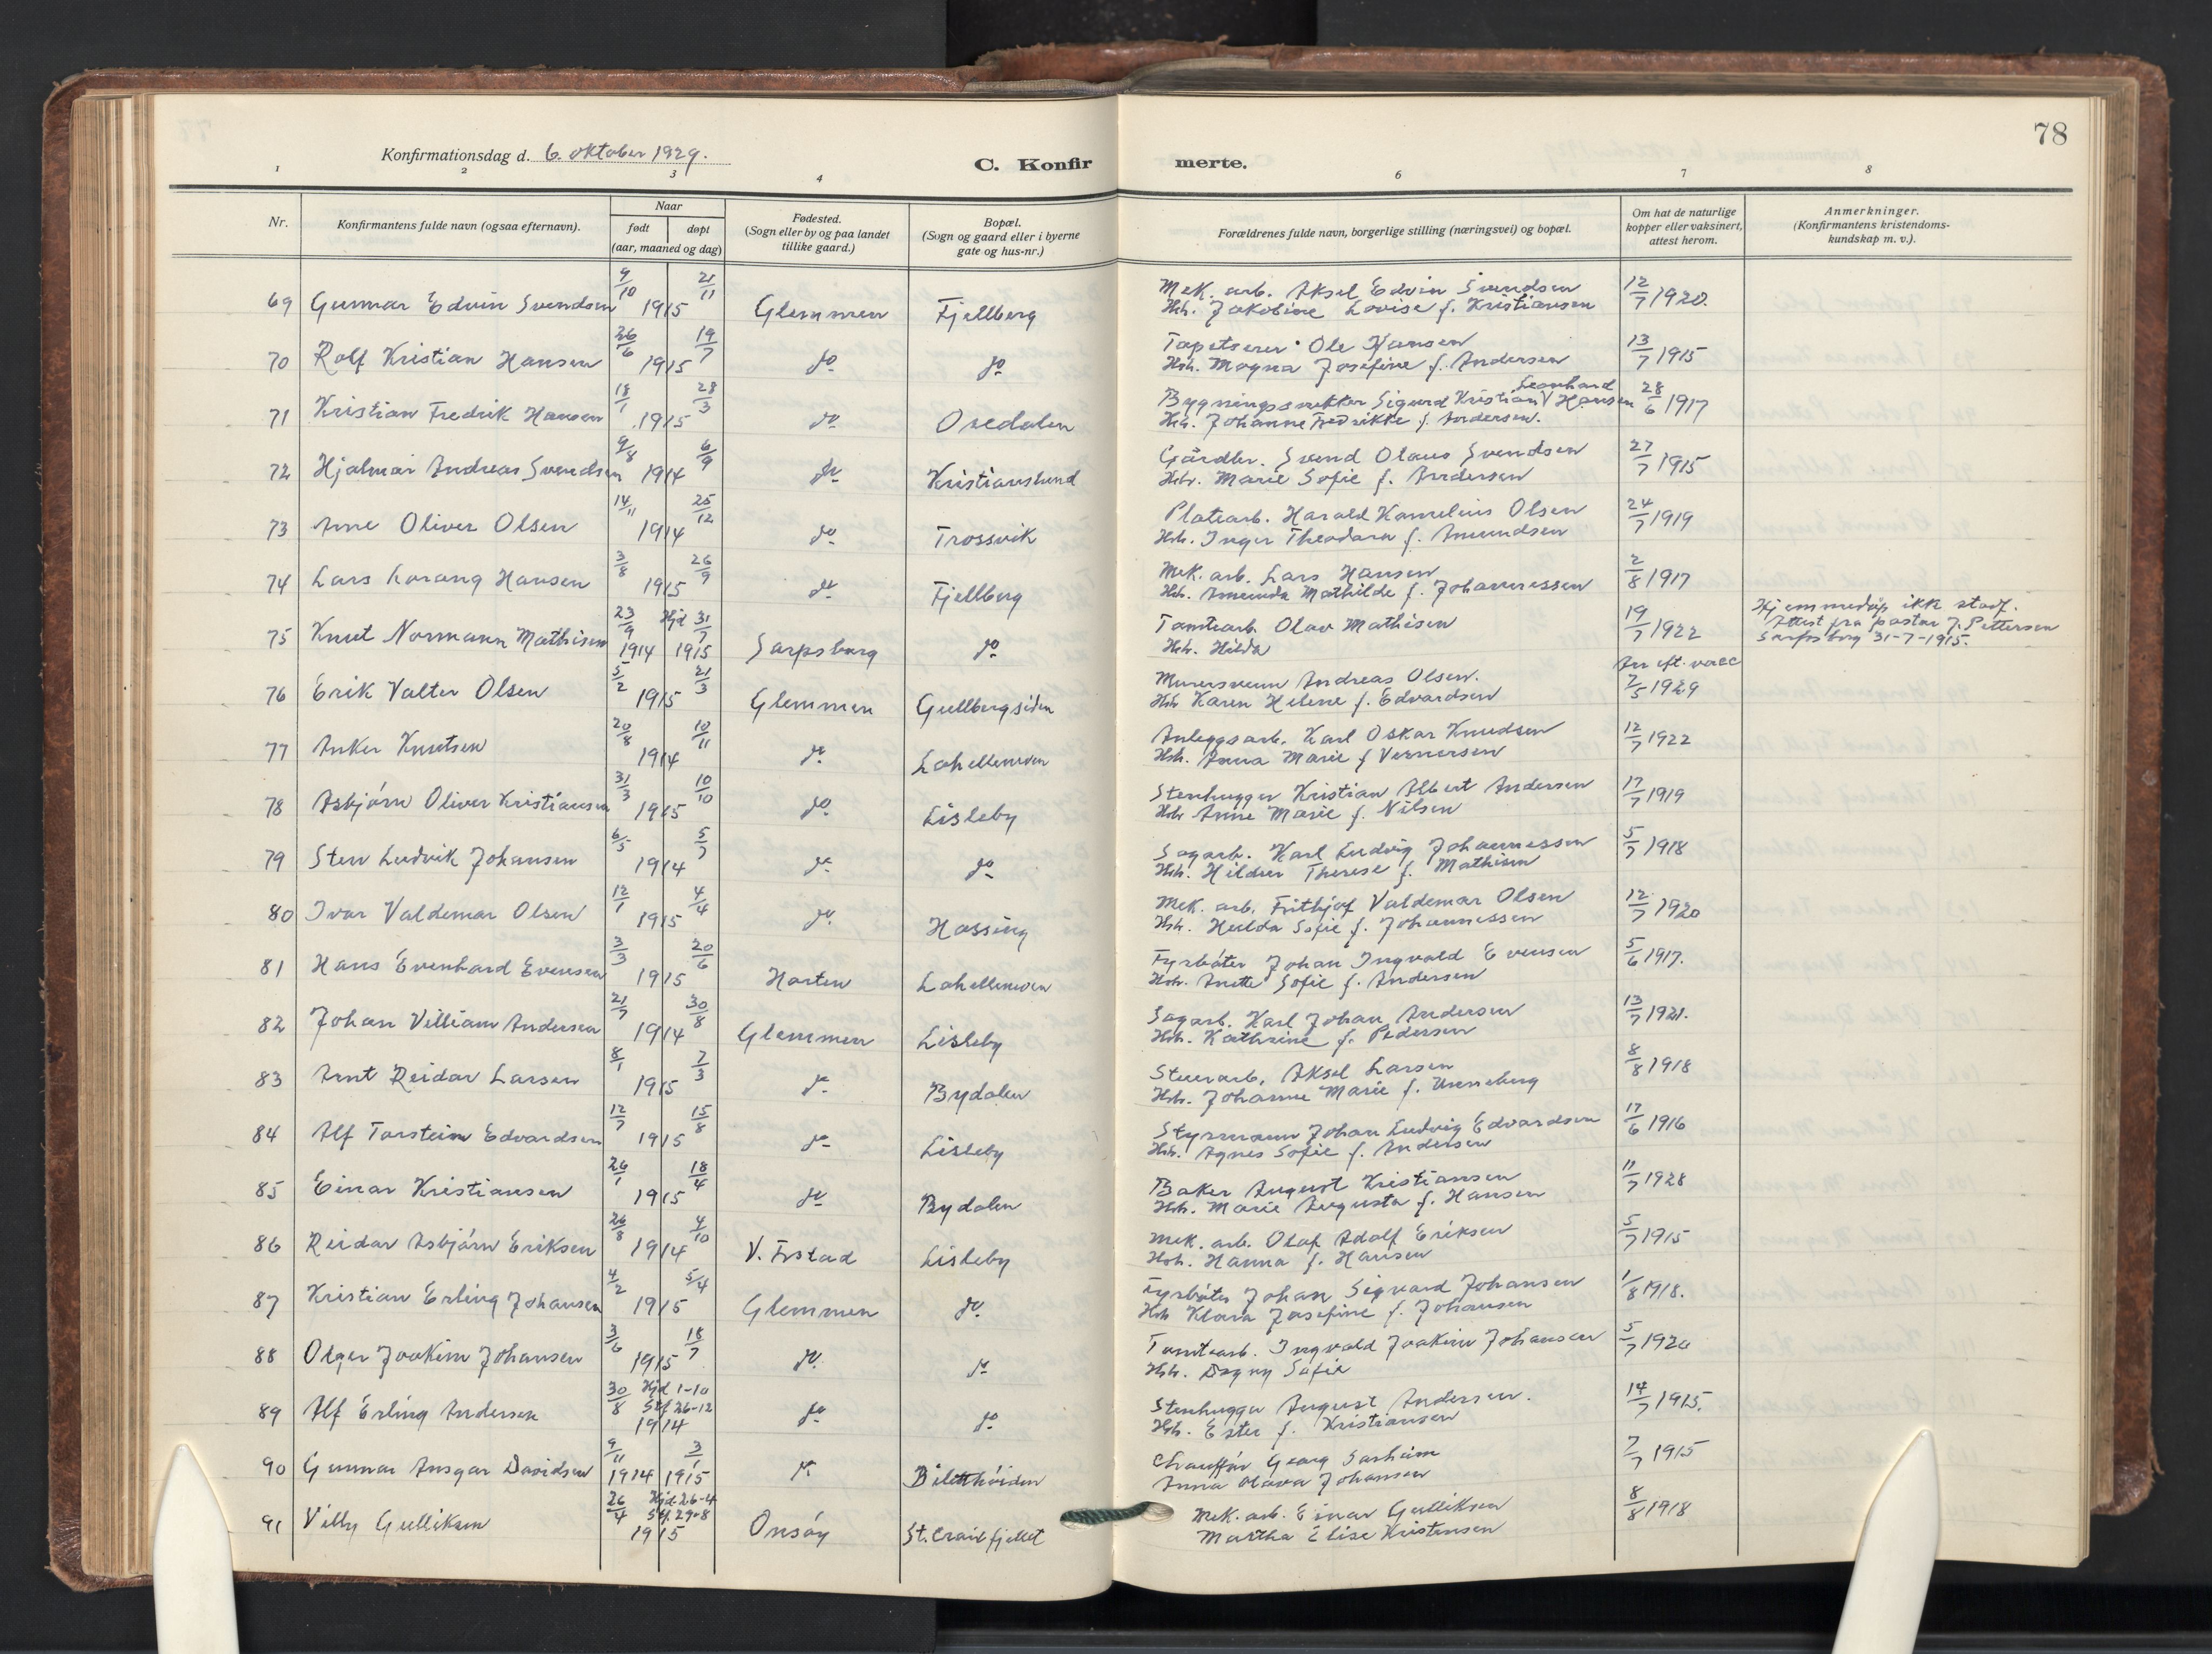 78
Konfirmationsdag d. 6. oktober 1929.
C. Konfirmerte.
1 2 3 4 6 7 8
Nr.
Konfirmantens fulde navn (ogsaa efternavn).
Naar
født døpt
(aar, maaned og dag)
Fødested.
(Sogn eller by og paa landet
tillike gaard.)
Bopæl.
(Sogn og gaard eller i byerne
gate og hus-nr.)
Forældrenes fulde navn, borgerlige stilling (næringsvei) og bopæl.
Om hat de naturlige
kopper eller vaksinert,
attest herom.
Anmerkninger.
(Konfirmantens kristendoms-
kundskap m. v.).
69 Gunnar Edvin Svendsen 9/10 21/11 1915 Glemmen Fjellberg Mek. arb. Aksel Edvin Svendsen 12/7 1920.
Hh. Jakobine Lovise f. Kristiansen
70 Rolf Kristian Hansen 26/6 19/7 1915 do do Tapetserer Ole Hansen 13/7 1915
Hh. Magna Josefine f. Andersen
71 Kristian Fredrik Hansen 18/1 28/3 1915 do Oredalen Bygningssnekker Sigurd Kristian Leonhard Hansen 28/6 1917
Hh. Johanne Fredrikke f. Andersen.
72 Hjalmar Andreas Svendsen 9/8 6/9 1914 do Kristianslund Gårdbr. Svend Olaus Svendsen 27/7 1915
Hh. Marie Sofie f. Andersen
73 Arne Oliver Olsen 14/11 25/12 1914 do Trossvik Platearb. Harald Kornelius Olsen 24/7 1919
Hh. Inger Theodora f. Amundsen
74 Lars Lorang Hansen 3/8 26/9 1915 do Fjellberg Mek. arb. Lars Hansen 2/8 1917
Hh. Amunda Mathilde f. Johannessen
75 Knut Normann Mathisen 23/9 1914 Hjd 31/7 1915 Sarpsborg do Tomtearb Olav Mathisen 19/7 1922 Hjemmedåp ikk stadf.
Hh. Hilda Attest fra pastor J. Pettersen
Sarpsborg 31-7-1915.
76 Erik Valter Olsen 5/2 21/3 1915 Glemmen Gullbergsiden Murersvenn Andreas Olsen. An eft. vacc 7/5 1929
Hh Karen Helene f. Edvardsen
77 Anker Knutsen 20/8 10/11 1914 do Lahellemoen Anleggsarb. Karl Oskar Knudsen 12/7 1922
Hh. Anna Marie f Vernersen
78 Asbjørn Oliver Kristiansen 31/3 10/10 1915 do Lisleby Stenhugger Kristian Albert Andersen 17/7 1919
Hh Anne Marie f. Nilsen
79 Sten Ludvik Johansen 6/5 5/7 1914 do do Sagarb. Karl Ludvig Johannessen 5/7 1918
Hh. Hildur Therese f. Mathisen
80 Ivar Valdemar Olsen 12/1 4/4 1915 do Hassing Mek. arb. Frithjof Valdemar Olsen 12/7 1920
Hh. Hulda Sofie f. Johannessen
81 Hans Evenhard Evensen 3/3 20/6 1915 Horten Lahellemoen Fyrbøter Johan Ingvald Evensen 5/6 1917.
Hh. Anette Sofie f. Andersen
82 Johan Villiam Andersen 21/7 30/8 1914 Glemmen Lisleby Sagarb. Karl Johan Andersen 13/7 1921.
Hh. Kathrine f. Pedersen
83 Arnt Reidar Larsen 8/1 7/3 1915 do Bydalen Stuerarb, Aksel Larsen 8/8 1918
Hh. Johanne Marie f. Unneberg
84 Alf Torstein Edvardsen 12/7 15/8 1915 do Lisleby Styrmann Johan Ludvig Edvardsen 17/6 1916
Hh. Agnes Sofie f. Andersen
85 Einar Kristiansen 26/1 18/4 1915 do Bydalen Baker August Kristiansen 11/7 1928
Hh. Marie Augusta f. Hansen
86 Reidar Asbjørn Eriksen 26/8 4/10 1914 V. Frstad Lisleby Mek. arb. Olaf Adolf Eriksen 5/7 1915
Hh. Hanna f. Hansen
87 Kristian Erling Johansen 4/2 5/4 1915 Glemmen do Fyrbøter Johan Sigvard Johansen 1/8 1918.
Hh Klara Josefine f. Johansen
88 Olger Joakim Johansen 3/6 18/7 1915 do do Tomtearb. Ingvald Joakim Johansen 5/7 1920
Hh. Dagny Sofie
89 Alf Erling Andersen 30/8 Hjd 1-10 Stf 26-12 1914 do do Stenhugger August Andersen. 14/7 1915.
Hh. Ester f. Kristiansen
90 Gunnar Ansgar Davidsen 9/11 1914 3/1 1915 do Biletthøiden Chauffør Georg Sarheim 7/7 1915
Anna Olava Johansen
91 Villy Gulliksen 26/4 Hjd 26-4 Stf. 29-8 1915 Onsøy St. Craii fjellet Mek. arb. Einar Gulliksen 8/8 1918
Martha Elise Kristensen